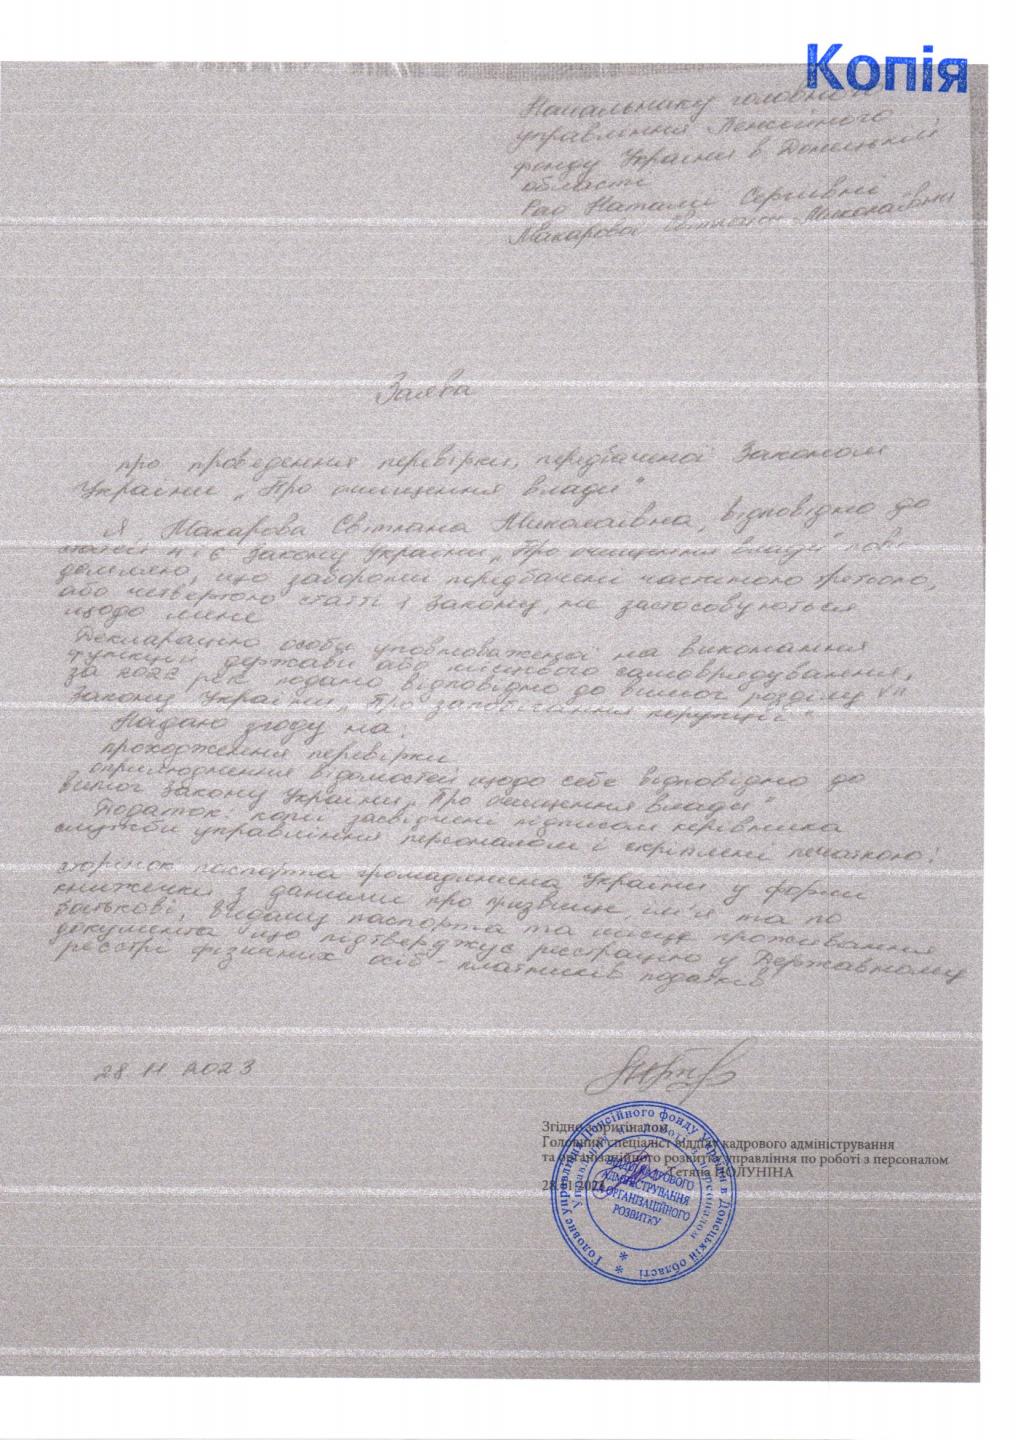 Копія
Начальнику головного
управління Пенсійного
фонду України в Донецькій
області
Рао Наталії Сергіївні
Макарової Світлани Миколаївни
Заява
про проведення перевірки, передбаченої Законом
України „Про очищення влади"
Я Макарова Світлана Миколаївна, відповідно до
статей 4 і 6 Закону України „Про очищення влади" пові
домляю, що заборони передбачені частиною третьою,
або четвертою статті 1 Закону, не застосовуються
щодо мене
Декларацію особи уповноваженої на виконання
функцій держави або місцевого самоврядування,
за рік подано відповідно до вимог розділу VII
Закону України „Про запобігання корупції"
Надаю згоду на:
проходження перевірки
оприлюднення відомостей щодо себе відповідно до
вимог Закону України „Про очищення влади"
Додаток: копії засвідчені підписом керівника
служби управління персоналом і скріплені печаткою:
сторінок паспорта громадянина України у формі
книжечки з даними про прізвище, ім'я та по
батькові, видачу паспорта та місце проживання
документа що підтверджує реєстрацію у Державному
реєстрі фізичних осіб - платників податків
28 11 2023
Згідно з оригіналом
Головний спеціаліст відділу кадрового адміністрування
та організаційного розвитку управління по роботі з персоналом
Тетяна ПОЛУНІНА
Головне управління Пенсійного фонду України в Донецькій області
Управління по роботі з персоналом
ВІДДІЛ КАДРОВОГО
АДМІНІСТРУВАННЯ
ТА ОРГАНІЗАЦІЙНОГО
РОЗВИТКУ